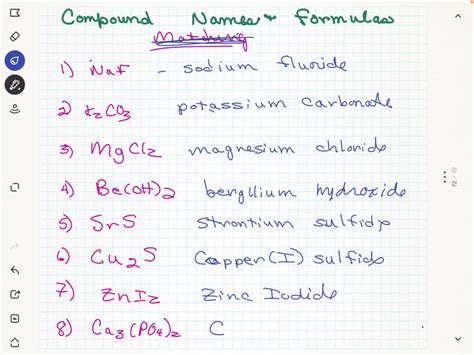 Compound Names & Formulas
Matching
1) NaF - sodium fluoride
2) K₂CO₃ potassium carbonate
3) MgCl₂ magnesium chloride
4) Be(OH)₂ beryllium hydroxide
5) SrS Strontium sulfide
6) Cu₂S Copper(I) sulfide
7) ZnI₂ Zinc Iodide
8) Ca₃(PO₄)₂ C
72 / 72